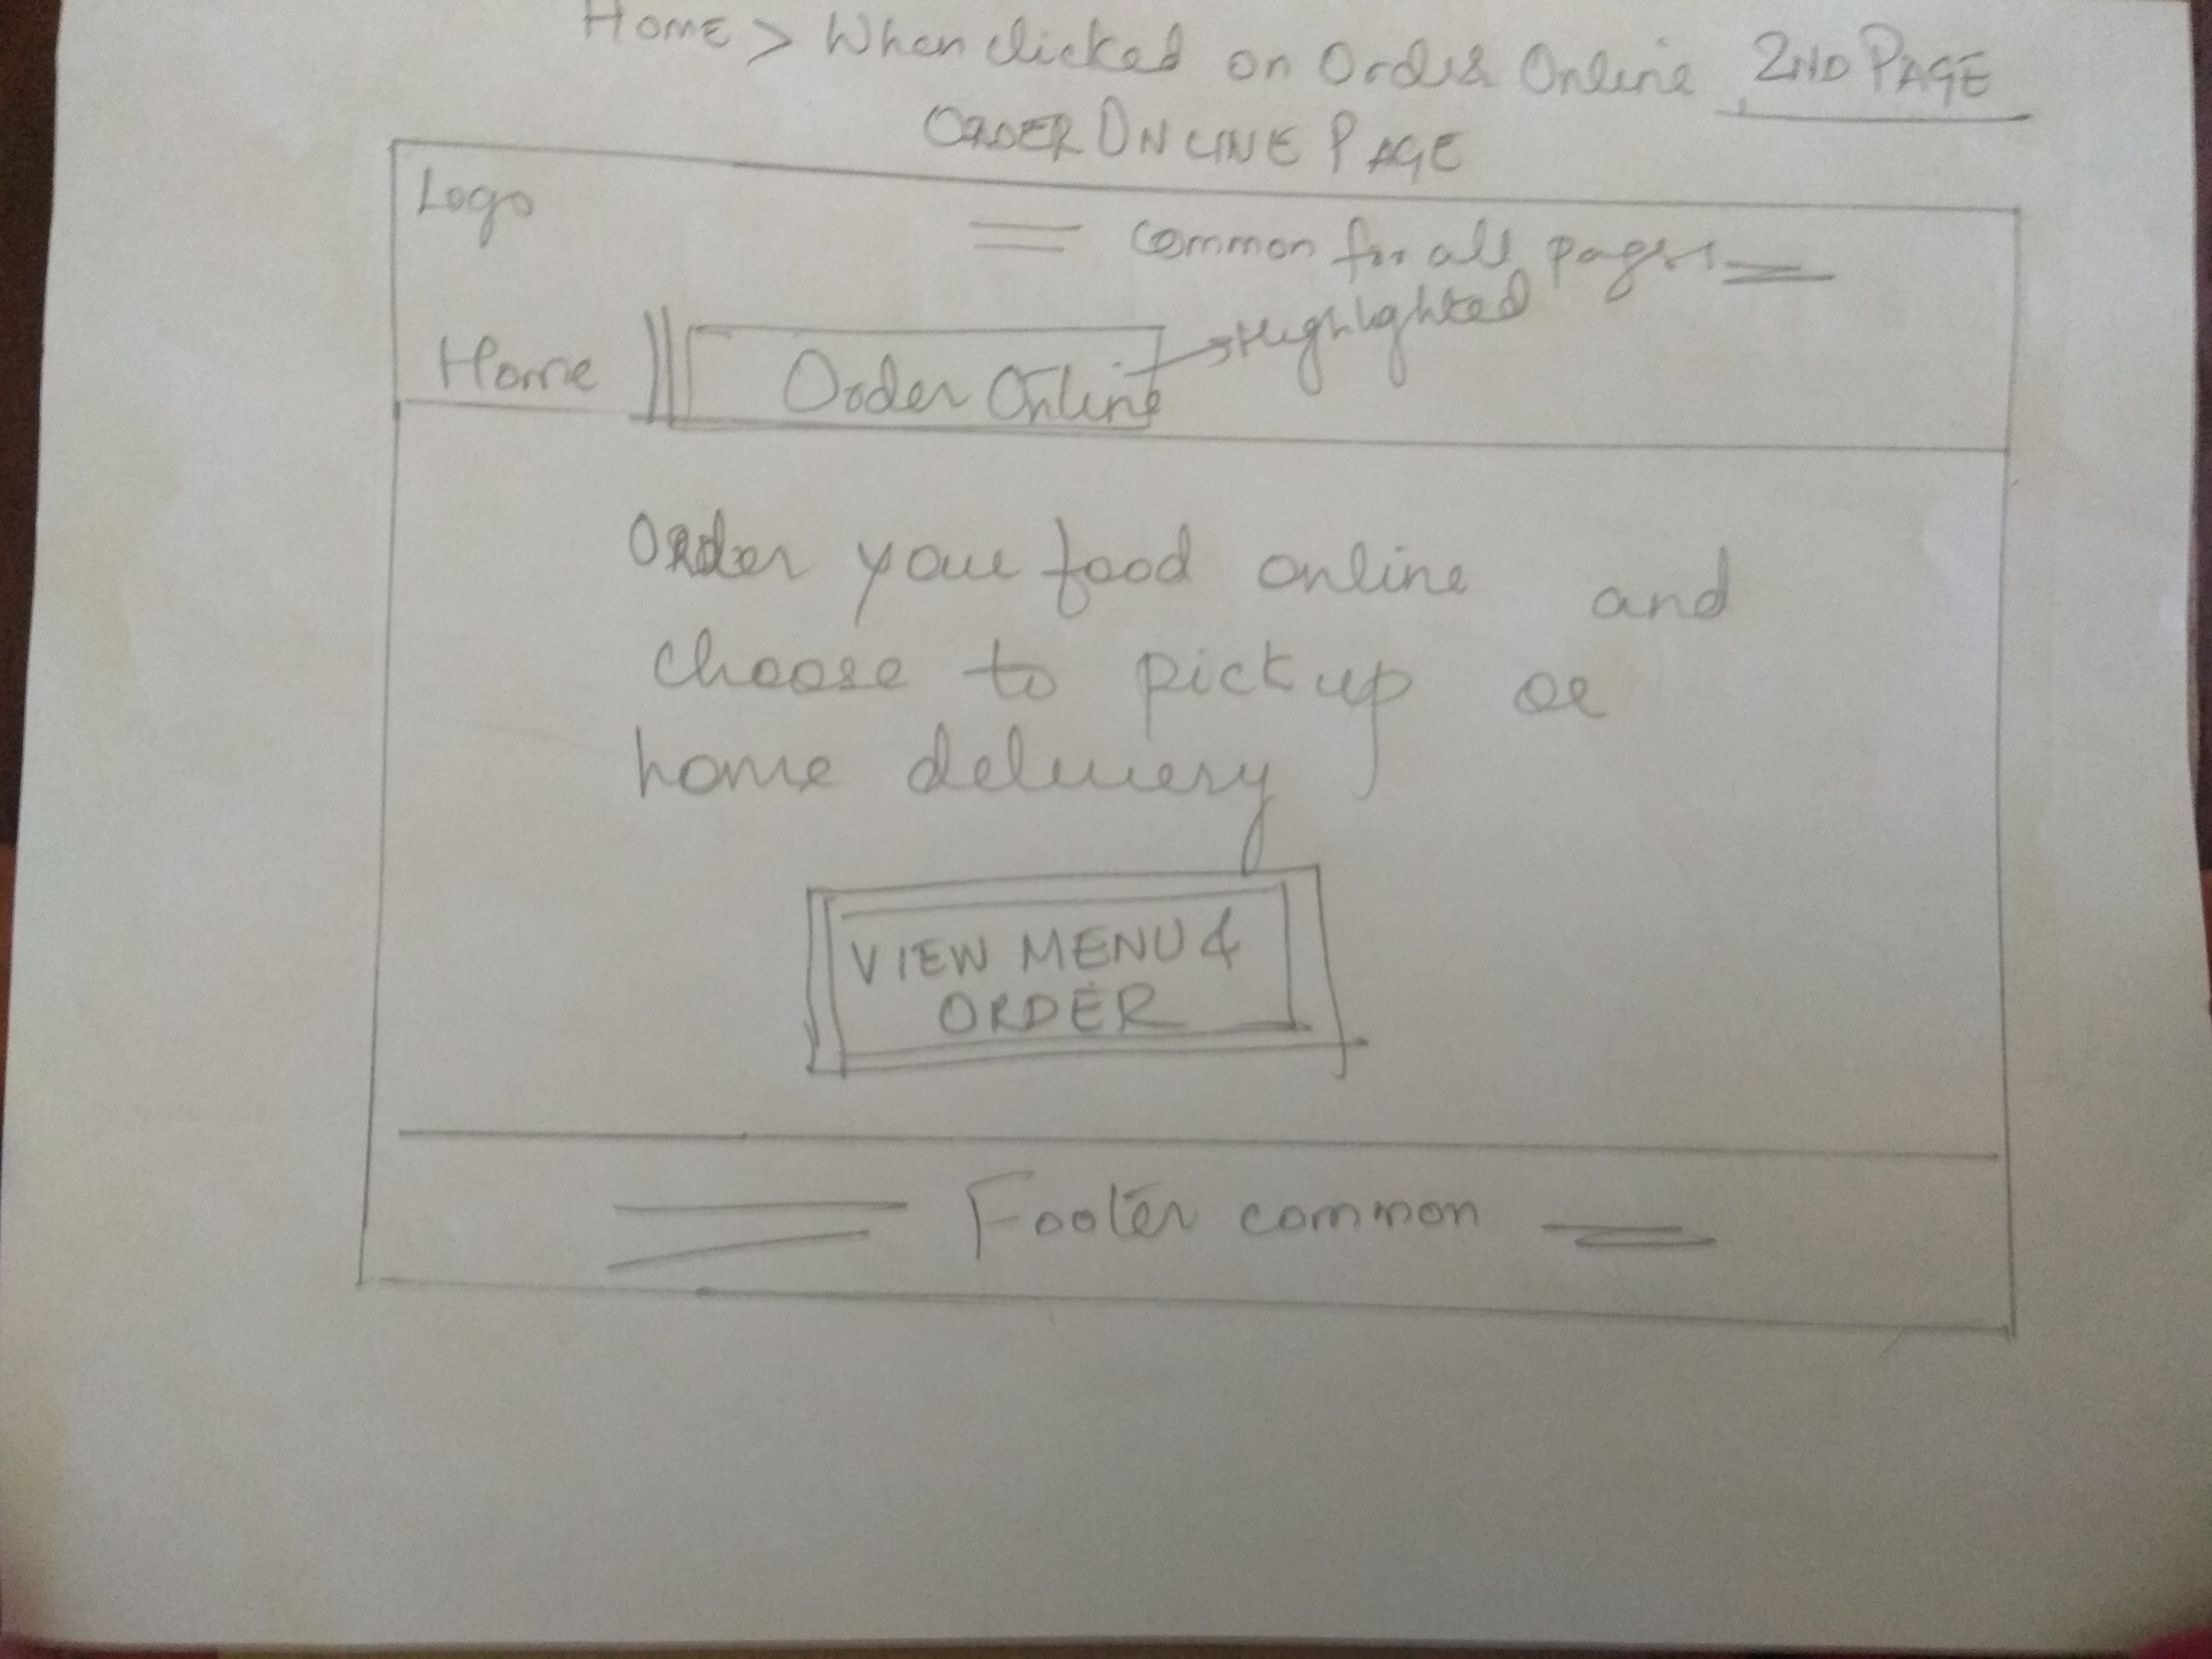 Home > When clicked on Order Online 2ND PAGE
ORDER ONLINE PAGE
Logo
common for all pages
Highlighted
Home
Order Online
Order your food online and
choose to pickup or
home delivery
VIEW MENU &
ORDER
Footer common